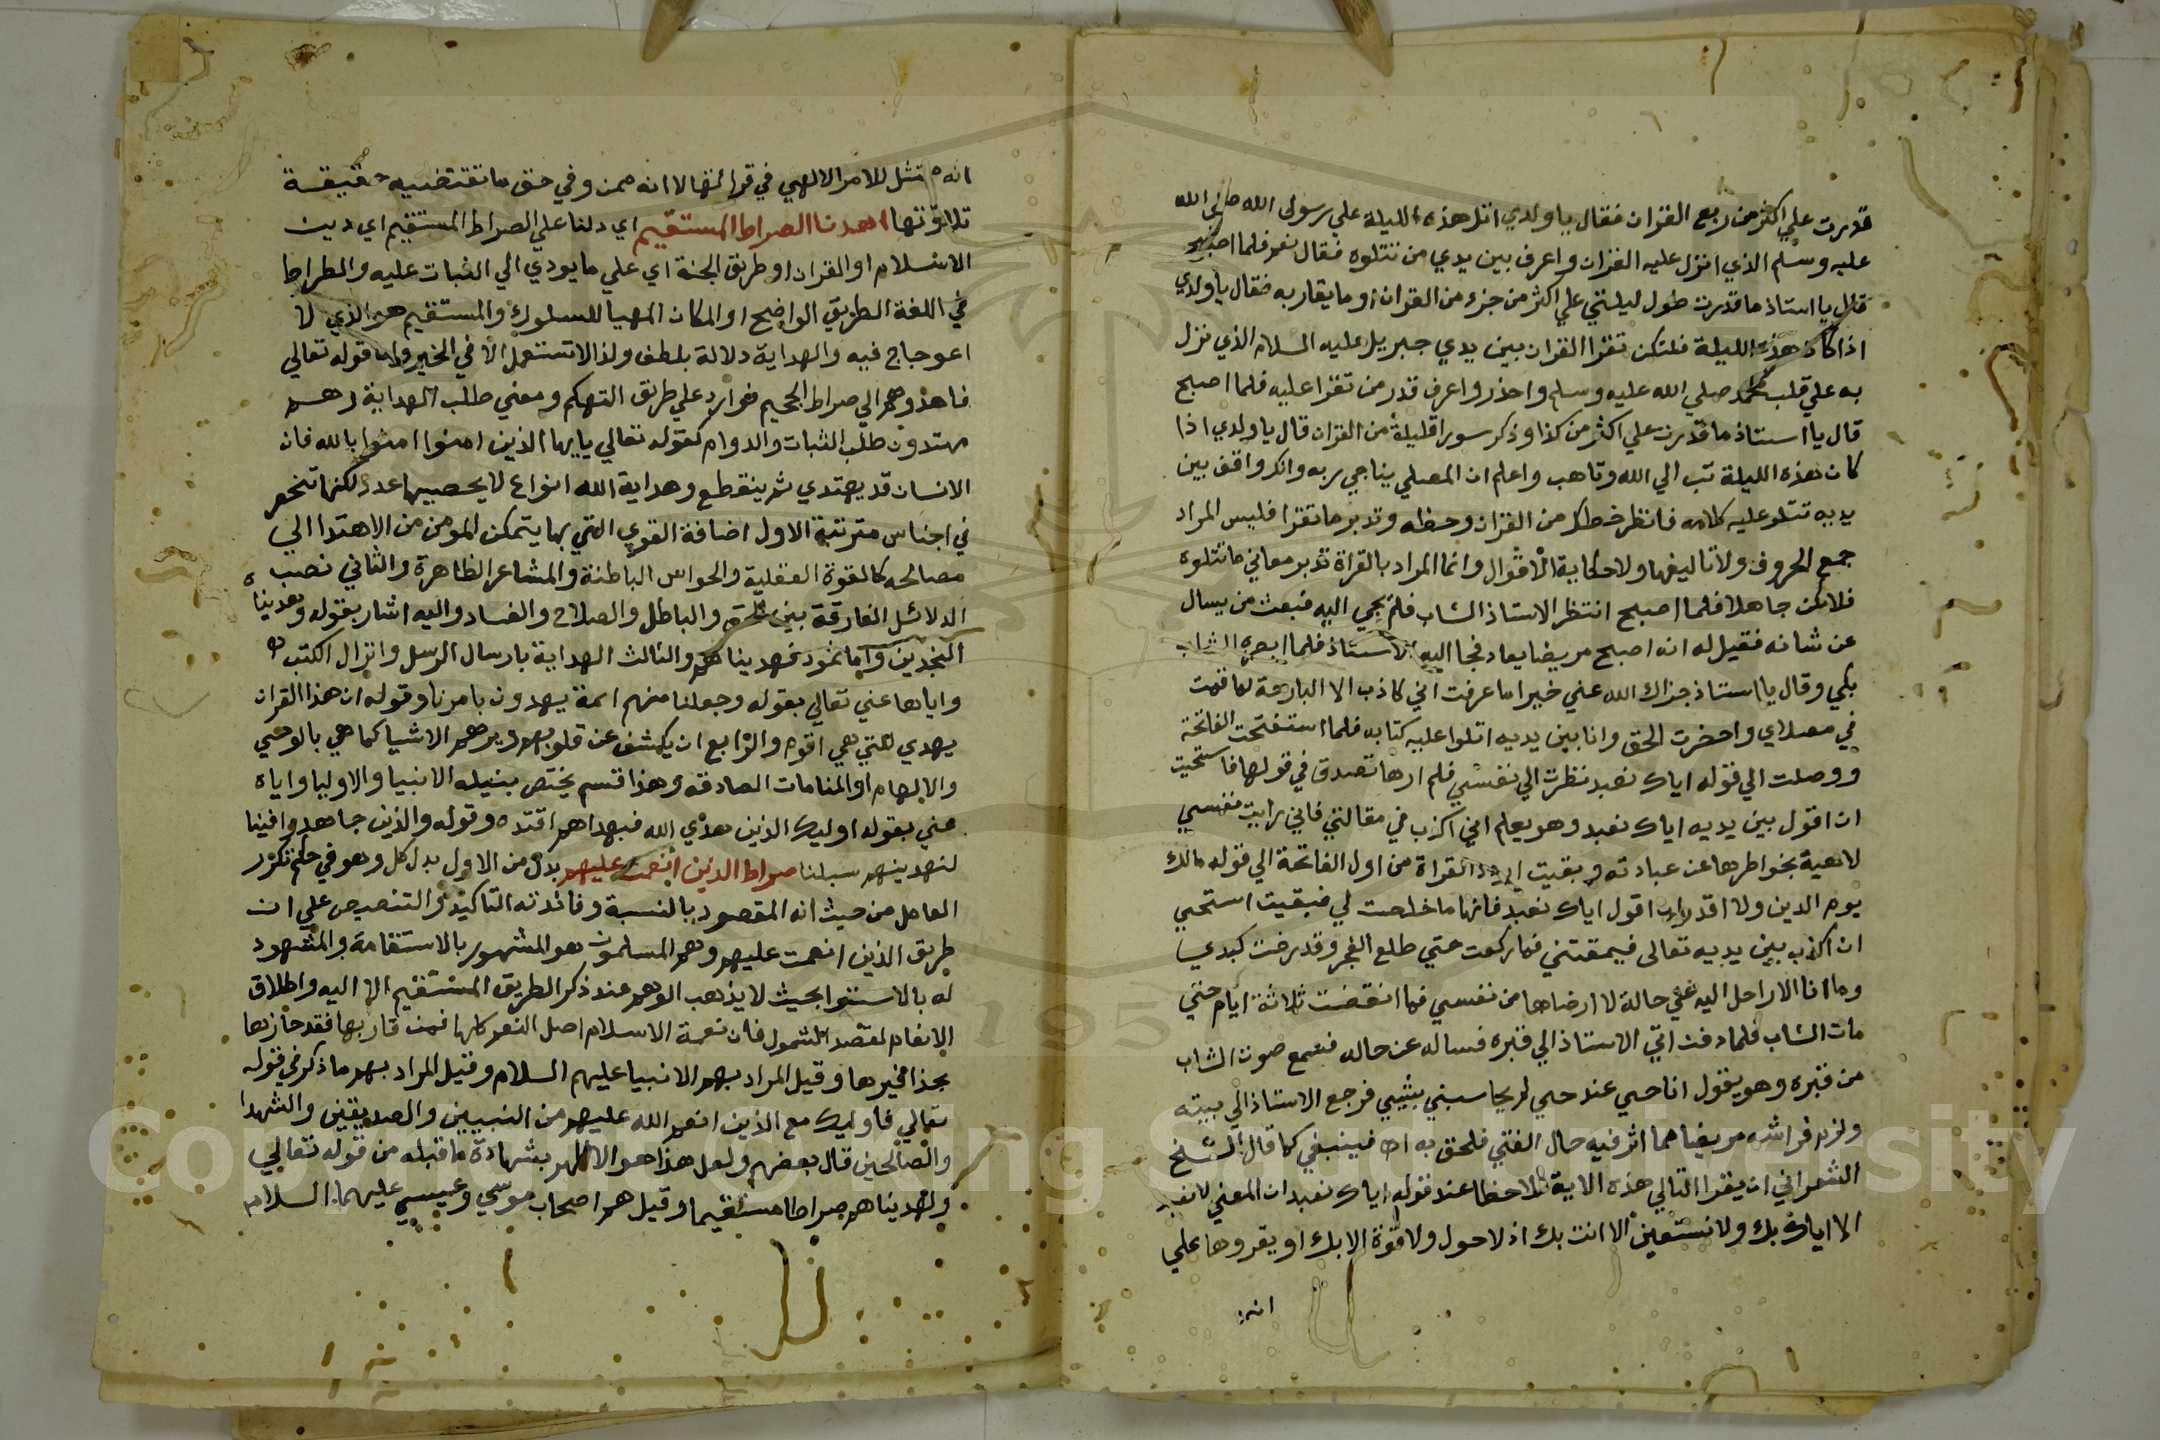 قدرت علي اكثر من ربع القران فقال يا ولدي اتل هذه الليلة علي رسول الله صلي الله
عليه وسلم الذي انزل عليه القران واعرف بين يدي من تتلوه فقال نعم فلما اصبح
قال يا استاذ ما قدرت طول ليلتي علي اكثر من جزء من القران او ما يقاربه فقال يا ولدي
اذا كان هذه الليلة فلتكن تقرا القران بين يدي جبريل عليه السلام الذي نزل
به علي قلب محمد صلي الله عليه وسلم واحذر واعرف قدر من تقرا عليه فلما اصبح
قال يا استاذ ما قدرت علي اكثر من كذا وذكر سورا قليلة من القران قال يا ولدي اذا
كان هذه الليلة تب الي الله وتاهب واعلم ان المصلي يناجي ربه وانك واقف بين
يديه تتلو عليه كلامه فانظر حظك من القران وحظه وتدبر ما تقرا فليس المراد
جمع الحروف ولا تاليفها ولا حكاية الاقوال وانما المراد بالقراة تدبر معاني ما تتلوه
فلا تكن جاهلا فلما اصبح انتظر الاستاذ الشاب فلم يجي اليه فبعث من يسال
عن شانه فقيل له انه اصبح مريضا يعاد فجا اليه الاستاذ فلما ابصره الشاب
بكي وقال يا استاذ جزاك الله عني خيرا ما عرفت اني كاذب الا البارحة لما قمت
في مصلاي واحضرت الحق وانا بين يديه اتلوا عليه كتابه فلما استفتحت الفاتحة
ووصلت الي قوله اياك نعبد نظرت الي نفسي فلم ارها تصدق في قولها فاستحيت
ان اقول بين يديه اياك نعبد وهو يعلم اني اكذب في مقالتي فاني رايت نفسي
لاهية بخواطرها عن عبادته وبقيت اردد القراة من اول الفاتحة الي قوله مالك
يوم الدين ولا اقدر ان اقول اياك نعبد فانها ما خلصت لي فبقيت استحي
ان اكذب بين يديه تعالى فيمقتني فما ركعت حتي طلع الفجر وقد رضت كبدي
وما انا الا راحل اليه علي حالة لا ارضاها من نفسي فما انقضت ثلاثة ايام حتي
مات الشاب فلما دفن اتي الاستاذ الي قبره فساله عن حاله فسمع صوت الشاب
من قبره وهو يقول انا حي عند حي لم يحاسبني بشيي فرجع الاستاذ الي بيته
ولزم فراشه مريضا مما اثر فيه حال الفتي فلحق به اه فينبغي كما قال الشيخ
الشعراني ان يقرا التالي هذه الاية ملاحظا عند قوله اياك نعبد ان المعني لا نعبد
الا اياك بك ولا نستعين الا انت بك اذ لا حول ولا قوة الا بك او يقروها علي
انه
انه ممتثل للامر الالهي في قرائتها لا انه ممن وفي حق ما تقتضيه حقيقة
تلاوتها اهدنا الصراط المستقيم اي دلنا علي الصراط المستقيم اي دين
الاسلام او القران او طريق الجنة اي علي ما يودي الي الثبات عليه والصراط
في اللغة الطريق الواضح او المكان المهيا للسلوك والمستقيم هو الذي لا
اعوجاج فيه والهداية دلالة بلطف ولذا لا تستعمل الا في الخير واما قوله تعالي
فاهدوهم الي صراط الجحيم فوارد علي طريق التهكم ومعني طلب الهداية وهم
مهتدون طلب الثبات والدوام كقوله تعالي يايها الذين امنوا امنوا بالله فان
الانسان قد يهتدي ثم ينقطع وهداية الله انواع لا يحصيها عدد لكنها تنحصر
في اجناس مترتبة الاول اضافة القوي التي بها يتمكن المومن من الاهتدا الي
مصالحه كالقوة العقلية والحواس الباطنة والمشاعر الظاهرة والثاني نصب
الدلائل الفارقة بين الحق والباطل والصلاح والفساد واليه اشار بقوله وهديناه
النجدين واما ثمود فهديناهم والثالث الهداية بارسال الرسل وانزال الكتب
واياها عني تعالي بقوله وجعلنا منهم ائمة يهدون بامرنا وقوله ان هذا القران
يهدي للتي هي اقوم والرابع ان يكشف عن قلوبهم ويريهم الاشيا كما هي بالوحي
والالهام او المنامات الصادقة وهذا قسم يختص بنيله الانبيا والاوليا واياه
عني بقوله اوليك الذين هدي الله فبهداهم اقتده وقوله والذين جاهدوا فينا
لنهدينهم سبلنا صراط الذين انعمت عليهم بدل من الاول بدل كل وهو في حكم تكرر
العامل من حيث انه المقصود بالنسبة وفائدته التاكيد والتنصيص علي ان
طريق الذين انعمت عليهم وهم المسلمون هو المشهور بالاستقامة والمشهود
له بالاستوا بحيث لا يذهب الوهم عند ذكر الطريق المستقيم الا اليه واطلاق
الانعام لقصد الشمول فان نعمة الاسلام اصل النعم كلها فمن فاز بها فقد حاز
بحذافيرها وقيل المراد بهم الانبيا عليهم السلام وقيل المراد بهم ما ذكر في قوله
تعالي فاوليك مع الذين انعم الله عليهم من النبيين والصديقين والشهدا
والصالحين قال بعضهم ولعل هذا هو الاظهر بشهادة ما قبله من قوله تعالي
ولهديناهم صراطا مستقيما وقيل هم اصحاب موسي وعيسي عليهما السلام
Copyright © King Saud University
195